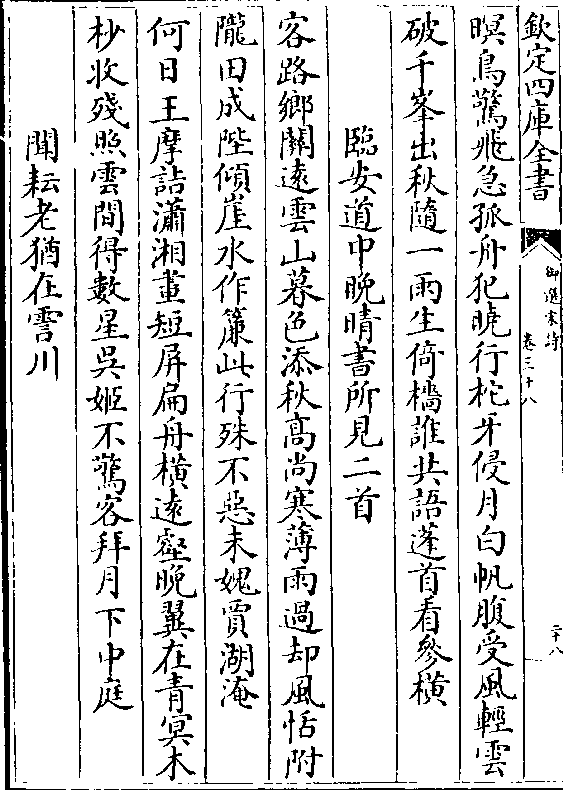 欽定四庫全書
御選宋詩
卷三十八
二十八
暝鳥驚飛急孤舟犯曉行柁牙侵月白帆腹受風輕雲
破千峯出秋隨一雨生倚檣誰共語蓬首看參橫
臨安道中晚晴書所見二首
客路鄉關逺雲山暮色添秋髙尚寒薄雨過却風恬附
隴田成陛傾崖水作簾此行殊不惡未媿賈湖淹
何日王摩詰瀟湘畫短屏扁舟横逺壑晚翼在青冥木
杪收殘照雲間得數星吳姬不驚客拜月下中庭
聞耘老猶在霅川